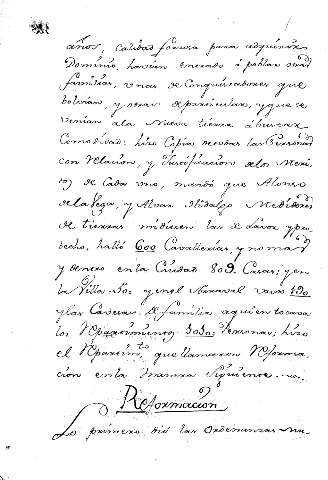 años, calidad forsosa para adquirir
Dominio, havian entrado à poblar otras
familias, unas de Conquistadores que
bolvian, y otras de particulares, y que se
venian ala Nueva tierra à buscar
Comodidad: hizo Copia de todas las Personas
con Relacion, y Justificacion delos Meri-
tos de Cada uno, mandò que Alonso
dela Vega, y Alvar Hidalgo Medidores
de tierras midiesen las de Lavor y pro-
becho, hallò 600 Cavallerias, y no mas
y dentro en la Ciudad 809 Casas: y en
la Villa
y las Cavezas de familia aquien tocava
los Repartimientos Personas; hizo
el Repartimto. que llamaron Reforma-
cion en la manera Siguiente
Reformacion
Lo primero diò las Ordenanzas